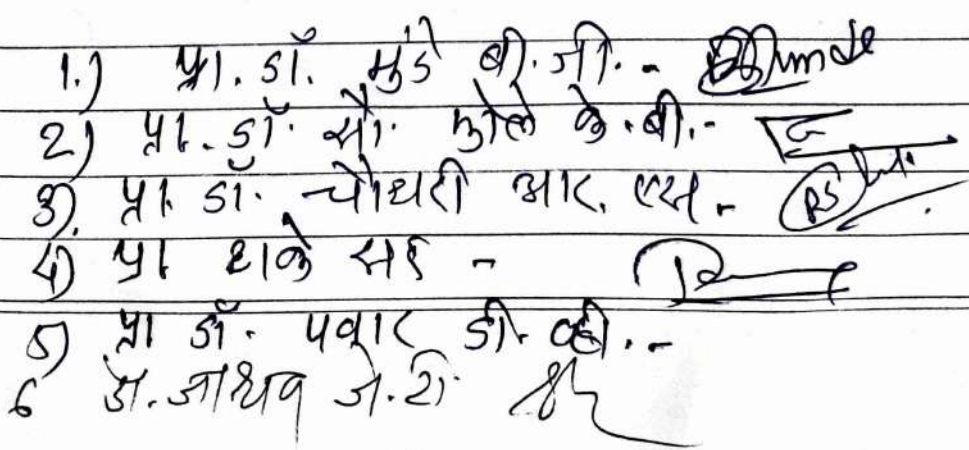 1.) प्रा. डॉ. मुंडे बी. जी. -
2) प्रा. डॉ. सौ. भोले के. बी. -
3) प्रा. डॉ. चौधरी आर. एस. -
4) प्रा धाके सर -
5) प्रा डॉ. पवार डी. व्ही. -
6 डॉ. जाधव जे.